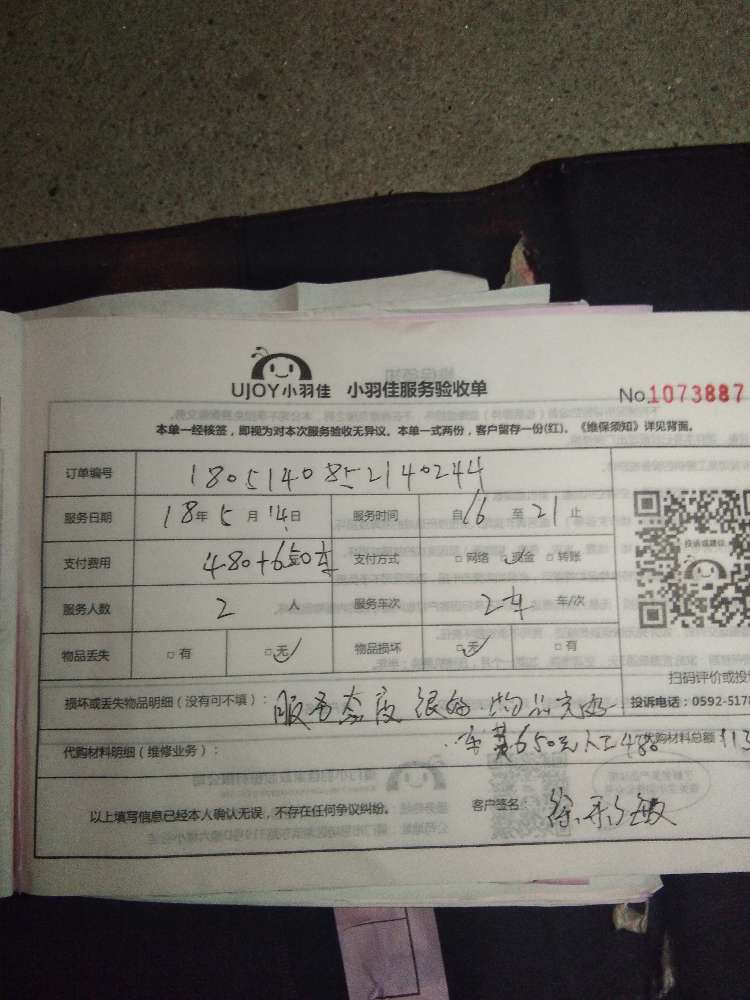 UJOY小羽佳 小羽佳服务验收单
No.1073887
本单一经核签，即视为对本次服务验收无异议。本单一式两份，客户留存一份(红)。《维保须知》详见背面。
订单编号 1805140852140244
服务日期 18年5月14日 服务时间 自16至21止
支付费用 480+650 支付方式 □网络 □现金 □转账
服务人数 2人 服务车次 2车 车/次
物品丢失 □有 □无 物品损坏 □无 □有
投诉或建议
扫码评价或投
损坏或丢失物品明细（没有可不填）： 服务态度很好.物品完好.
投诉电话：0592-5178
车费650元人工480
代购材料明细（维修业务）： 代购材料总额 113
以上填写信息已经本人确认无误，不存在任何争议纠纷。 客户签名